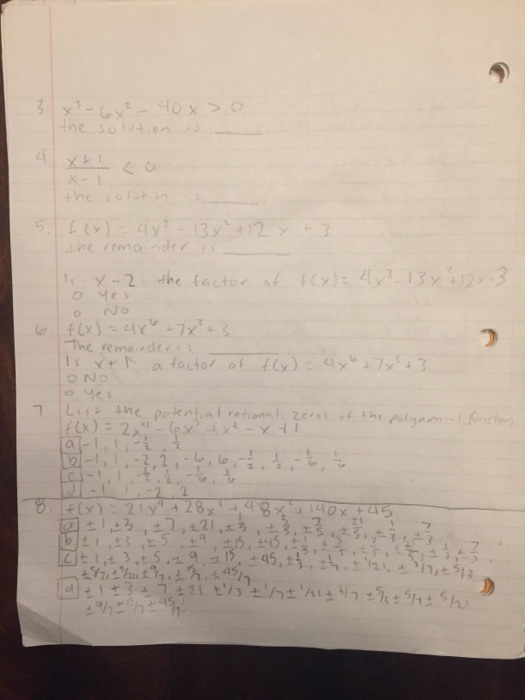 3. x³ - 6x² - 40x > 0
the solution is ____
4. x+1 / x-1 < 0
the solution is ____
5. f(x) = 4x³ - 13x² + 12x + 3
the remainder is ____
Is x-2 the factor of f(x) = 4x³ - 13x² + 12x + 3
o Yes
o No
6. f(x) = 4x⁶ + 7x³ + 3
The remainder is ____
Is x+1 a factor of f(x) = 4x⁶ + 7x³ + 3
o No
o Yes
7. List the potential rational zeros of the polynomial function
f(x) = 2x⁴ - 6x³ + x² - x + 1
a -1, 1, -1/2, 1/2
b -1, 1, -2, 2, -6, 6, -1/2, 1/2, -1/6, 1/6
c -1, 1, -1/2, 1/2, -1/6, 1/6
d -1, 1, -2, 2
8. f(x) = 21x⁴ + 28x³ + 48x² + 140x + 45
a ±1, ±3, ±7, ±21
b ±1, ±3, ±5, ±9, ±15, ±45
c ±1, ±3, ±5, ±9, ±15, ±45, ±1/3, ±1/7, ±1/21, ±3/7, ±5/3
±5/7, ±5/21, ±9/7, ±15/7, ±45/7
d ±1 ±3 ±7 ±21 ±1/3 ±1/7 ±1/21 ±3/7 ±5/3 ±5/7 ±5/21
±9/7 ±15/7 ±45/7